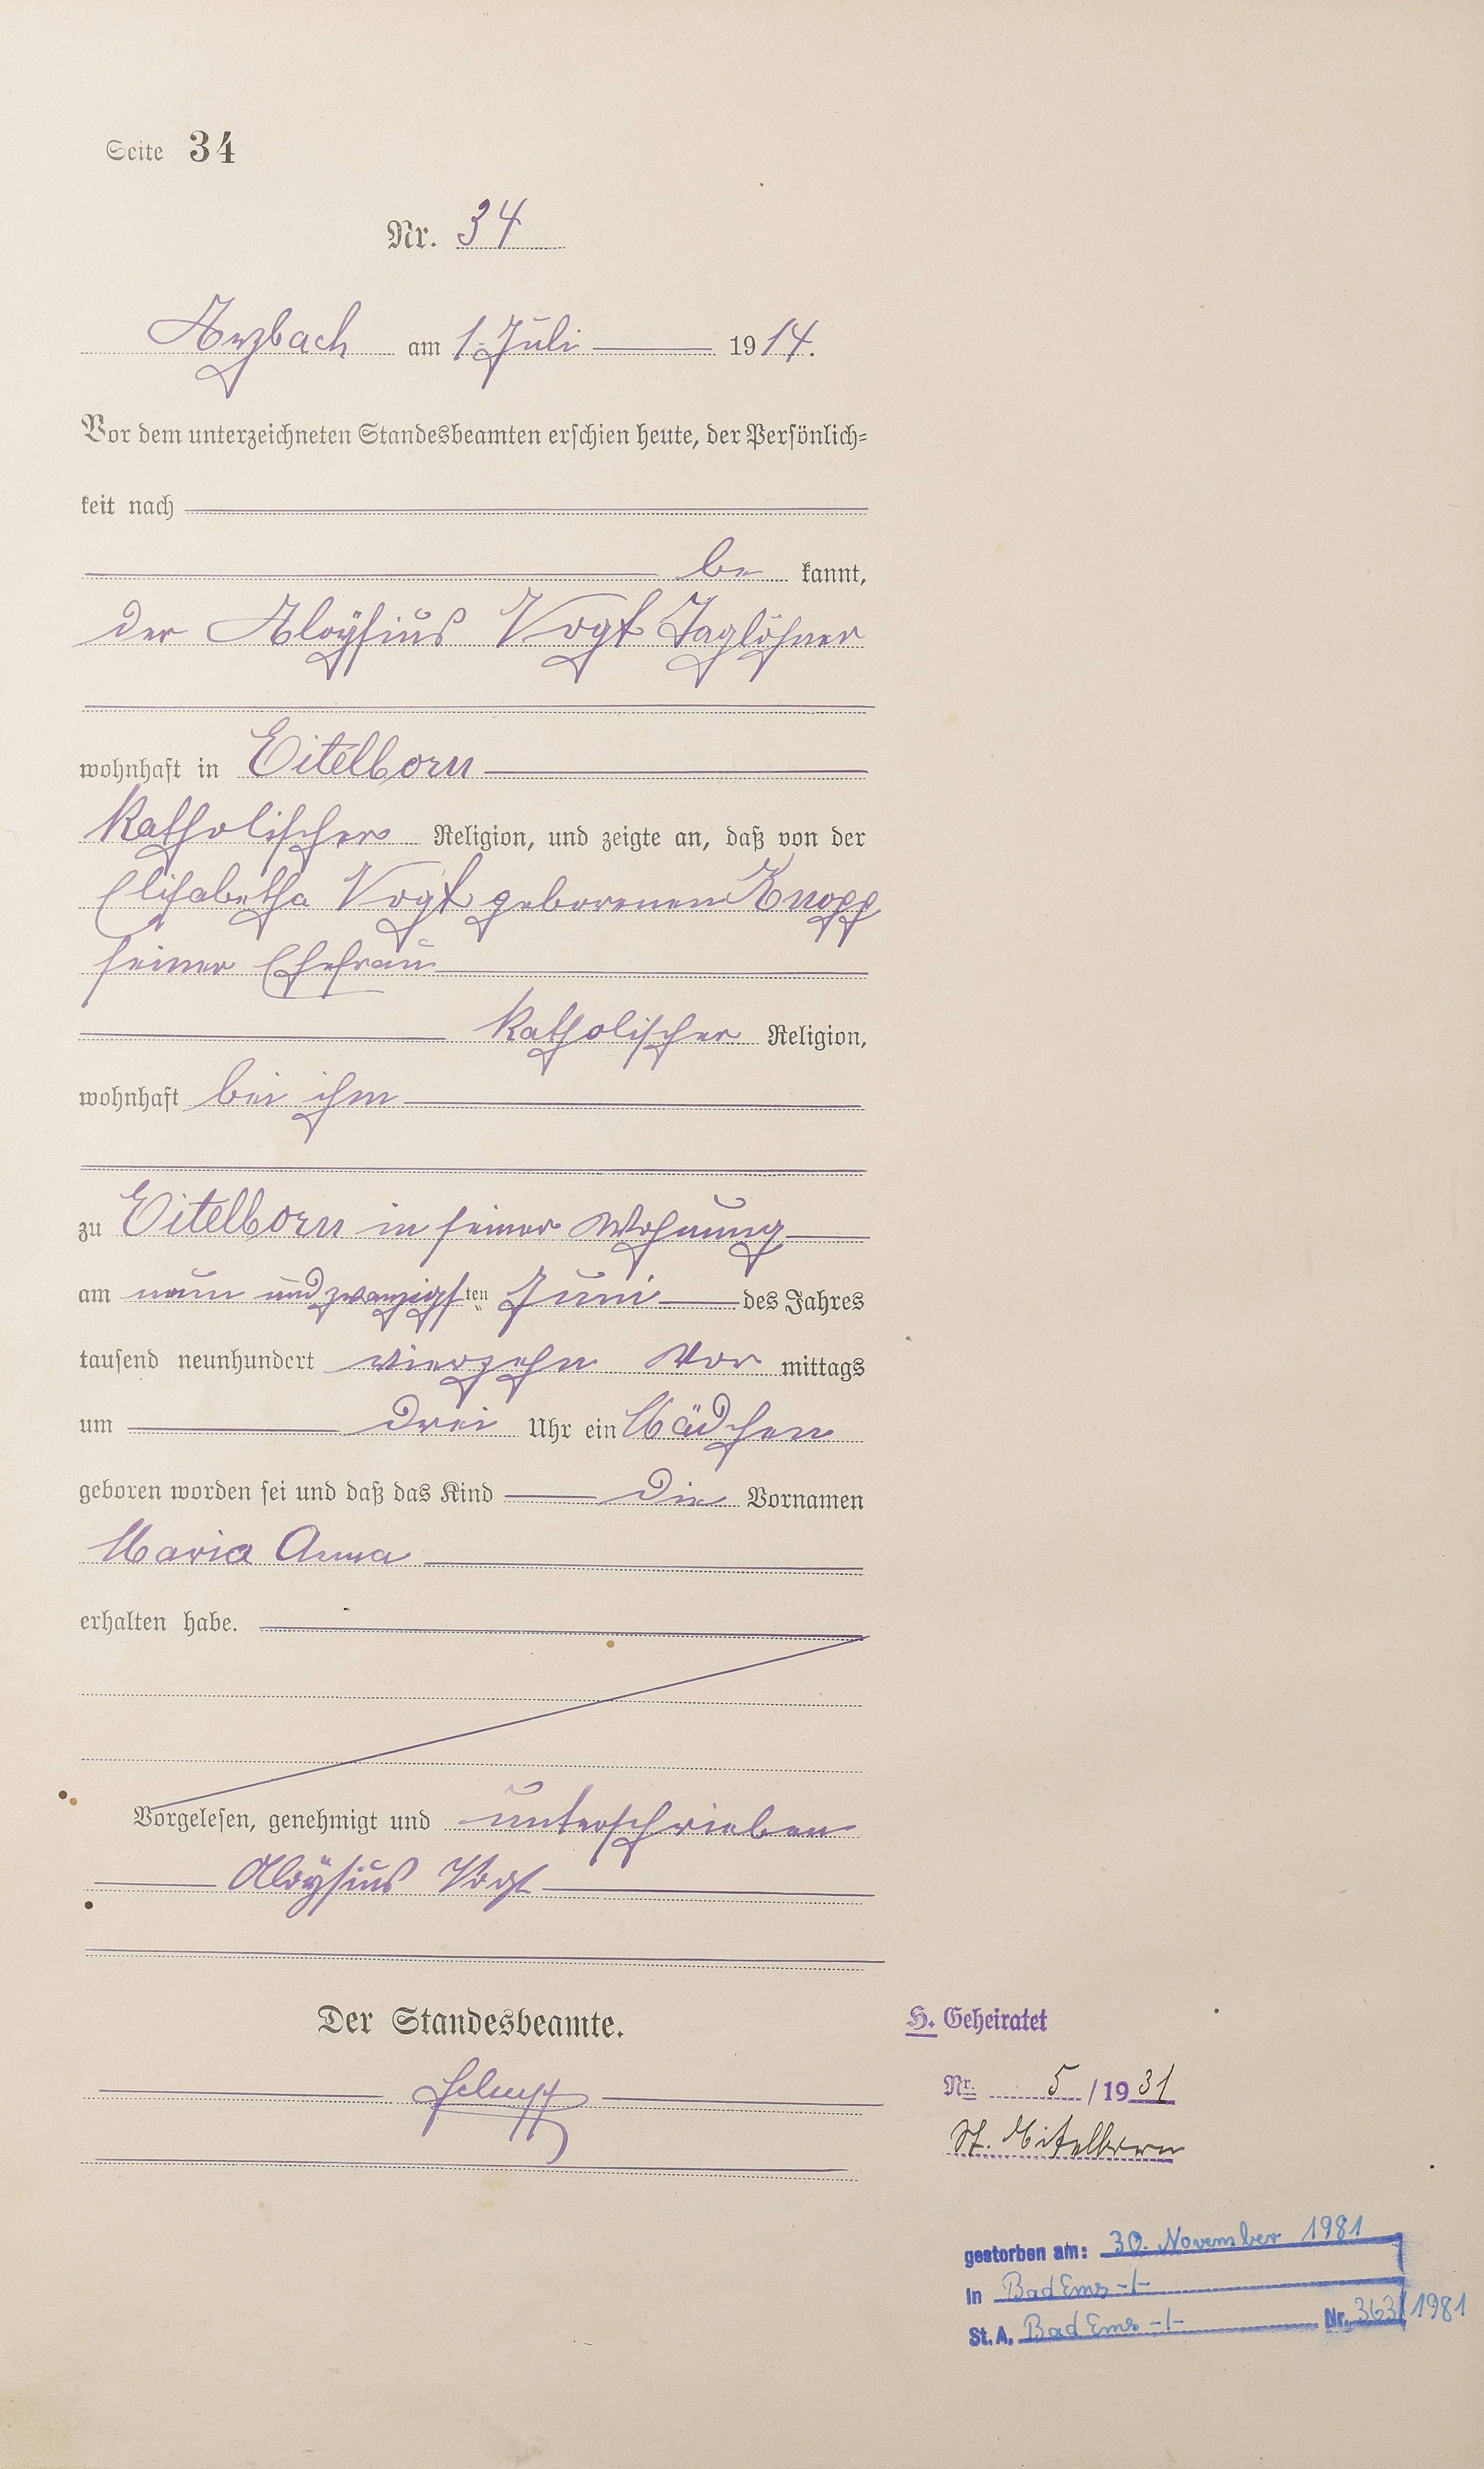 Seite 34
Nr. 34
Arzbach am 1. Juli 1914.
Vor dem unterzeichneten Standesbeamten erschien heute, der Persönlich=
keit nach
be kannt,
der Aloÿsius Vogt Taglöhner
wohnhaft in Eitelborn
katholischer Religion, und zeigte an, daß von der
Elisabetha Vogt geborenen Knopp
seiner Ehefrau
katholischer Religion,
wohnhaft bei ihm
zu Eitelborn in seiner Wohnung
am neun und zwanzigsten Juni des Jahres
tausend neunhundert vierzehn Vor mittags
um drei Uhr ein Mädchen
geboren worden sei und daß das Kind die Vornamen
Maria Anna
erhalten habe.
Vorgelesen, genehmigt und unterschrieben
Aloÿsius Vogt
Der Standesbeamte.
H. Geheiratet
Nr. 5 / 1931
St. Eitelborn
gestorben am: 30. November 1981
in Bad Ems -/-
St. A. Bad Ems -/- Nr. 363/1981